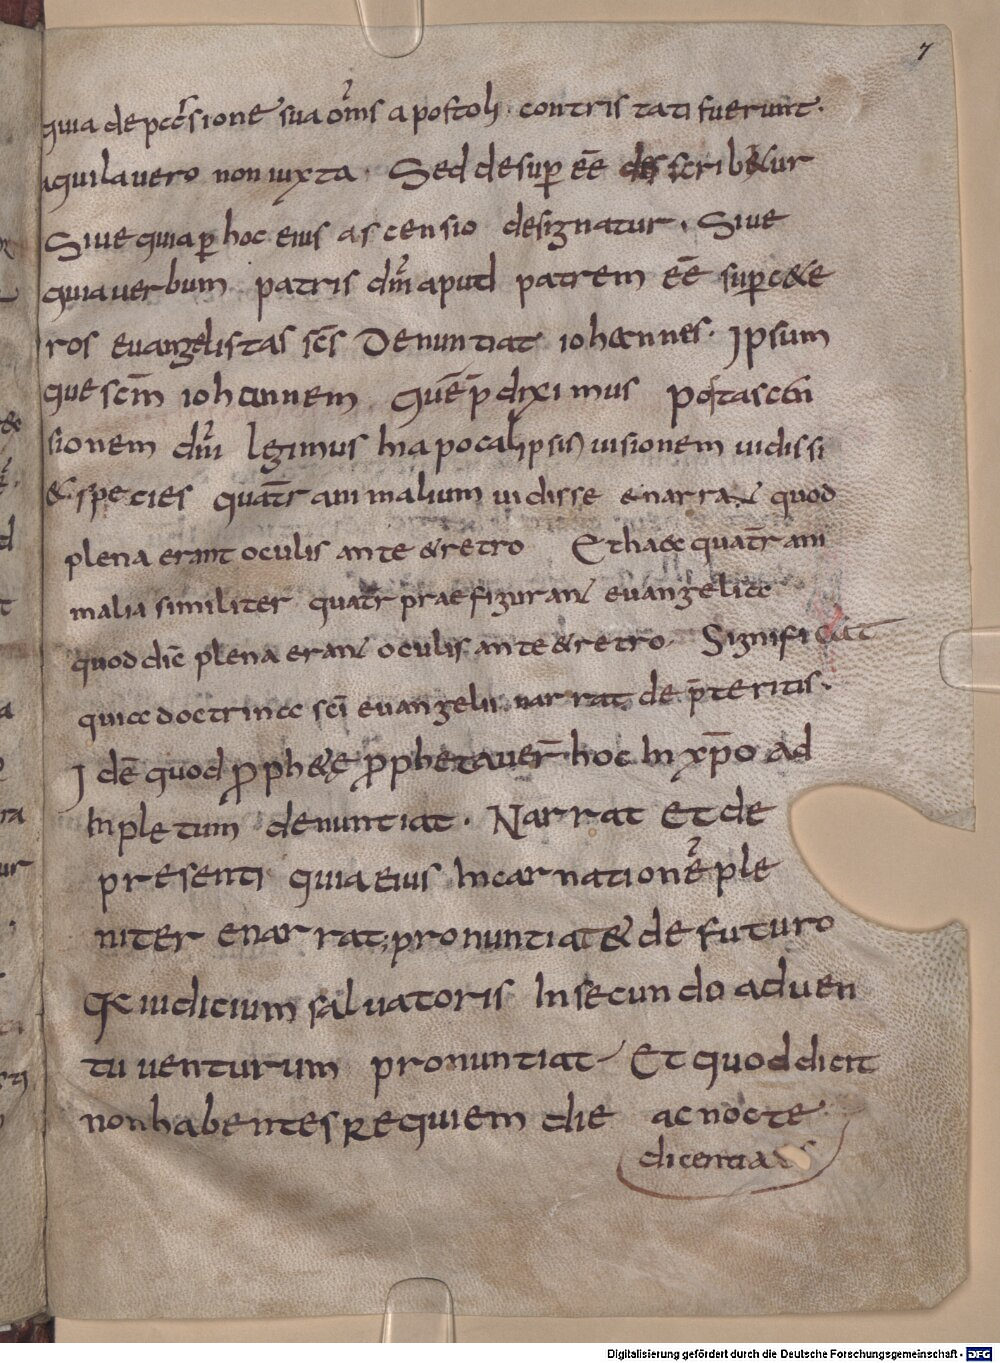 7
quia de p̄cc̄sione sua om̄s apostoli · contristati fuerunt ·
aquila uero non iuxta · Sed desup̱ eē describ&ur
Siue quia p̱ hoc eius ascensio designatur · Siue
quia uerbum patris dn̄i aput patrem eē sup̱ c&e
ros euangelistas sc̄s Denuntiat iohannes · Ipsum
que sc̄m iohannem quē p̄diximus post ascen
sionem dn̄i legimus In apocalipsin uisionem uidissi
& species quat̄r animalium uidisse enarrant quod
plena erant oculis ante & retro Et haec quat̄r ani
malia similiter quat̄r praefigurant euangelia
quod dic̄ plena erant oculis ante & retro · Significat
quia doctrina sc̄i euangelii narrat de p̄teritis ·
Idē quod ꝓph&ę ꝓphetauer̄ hoc In xp̄o ad
Inpletum denuntiat · Narrat Et de
presenti quia eius Incarnationē ple
niter enarrat; pronuntiat & de futuro
Qa iudicium saluatoris In secundo aduen
tu uenturum pronuntiat Et quod dicit
non habentes requiem die ac nocte
dicentia
Digitalisierung gefördert durch die Deutsche Forschungsgemeinschaft - DFG